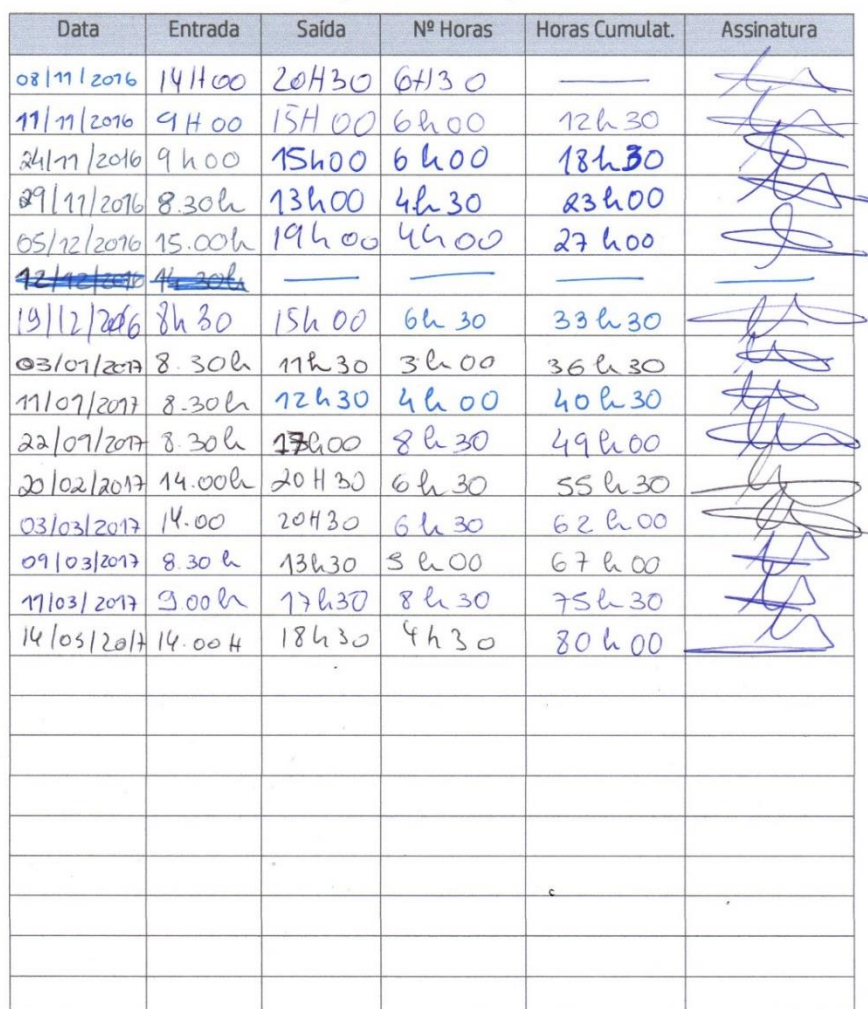 Data Entrada Saída Nº Horas Horas Cumulat. Assinatura
08/11/2016 14H00 20H30 6H30 —
11/11/2016 9H00 15H00 6h00 12h30
24/11/2016 9h00 15h00 6h00 18h30
29/11/2016 8.30h 13h00 4h30 23h00
05/12/2016 15.00h 19h00 4h00 27h00
12/12/2016 14.30h — — — —
19/12/2016 8h30 15h00 6h30 33h30
03/01/2017 8.30h 11h30 3h00 36h30
11/01/2017 8.30h 12h30 4h00 40h30
22/01/2017 8.30h 17h00 8h30 49h00
20/02/2017 14.00h 20H30 6h30 55h30
03/03/2017 14.00 20H30 6h30 62h00
09/03/2017 8.30h 13h30 5h00 67h00
11/03/2017 9.00h 17h30 8h30 75h30
14/03/2017 14.00H 18h30 4h30 80h00